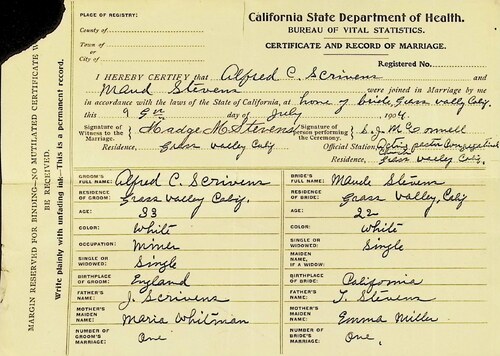 PLACE OF REGISTRY:
County of
Town of
or
City of
California State Department of Health.
BUREAU OF VITAL STATISTICS.
CERTIFICATE AND RECORD OF MARRIAGE.
Registered No.
I HEREBY CERTIFY that Alfred C. Scrivens and
Maud Stevens were joined in Marriage by me
in accordance with the laws of the State of California, at home of bride, Grass Valley Calif.
this 9th day of July 190
Signature of Witness to the Marriage. Madge M. Stevens
Signature of person performing the Ceremony. McConnell
Residence, Grass Valley Calif
Official Station, Acting pastor Congregational
Residence, Grass Valley Calif.
MARGIN RESERVED FOR BINDING—NO MUTILATED CERTIFICATE W
BE RECEIVED.
Write plainly with unfading ink—This is a permanent record.
GROOM'S FULL NAME: Alfred C. Scrivens
RESIDENCE OF GROOM: Grass Valley Calif.
AGE: 33
COLOR: White
OCCUPATION: Miner
SINGLE OR WIDOWED: Single
BIRTHPLACE OF GROOM: England
FATHER'S NAME: J. Scrivens
MOTHER'S MAIDEN NAME: Maria Whitman
NUMBER OF GROOM'S MARRIAGE: One
BRIDE'S FULL NAME: Maude Stevens
RESIDENCE OF BRIDE: Grass Valley, Calif
AGE: 22
COLOR: White
SINGLE OR WIDOWED: Single
MAIDEN NAME, IF A WIDOW:
BIRTHPLACE OF BRIDE: California
FATHER'S NAME: T. Stevens
MOTHER'S MAIDEN NAME: Emma Miller
NUMBER OF BRIDE'S MARRIAGE: One.